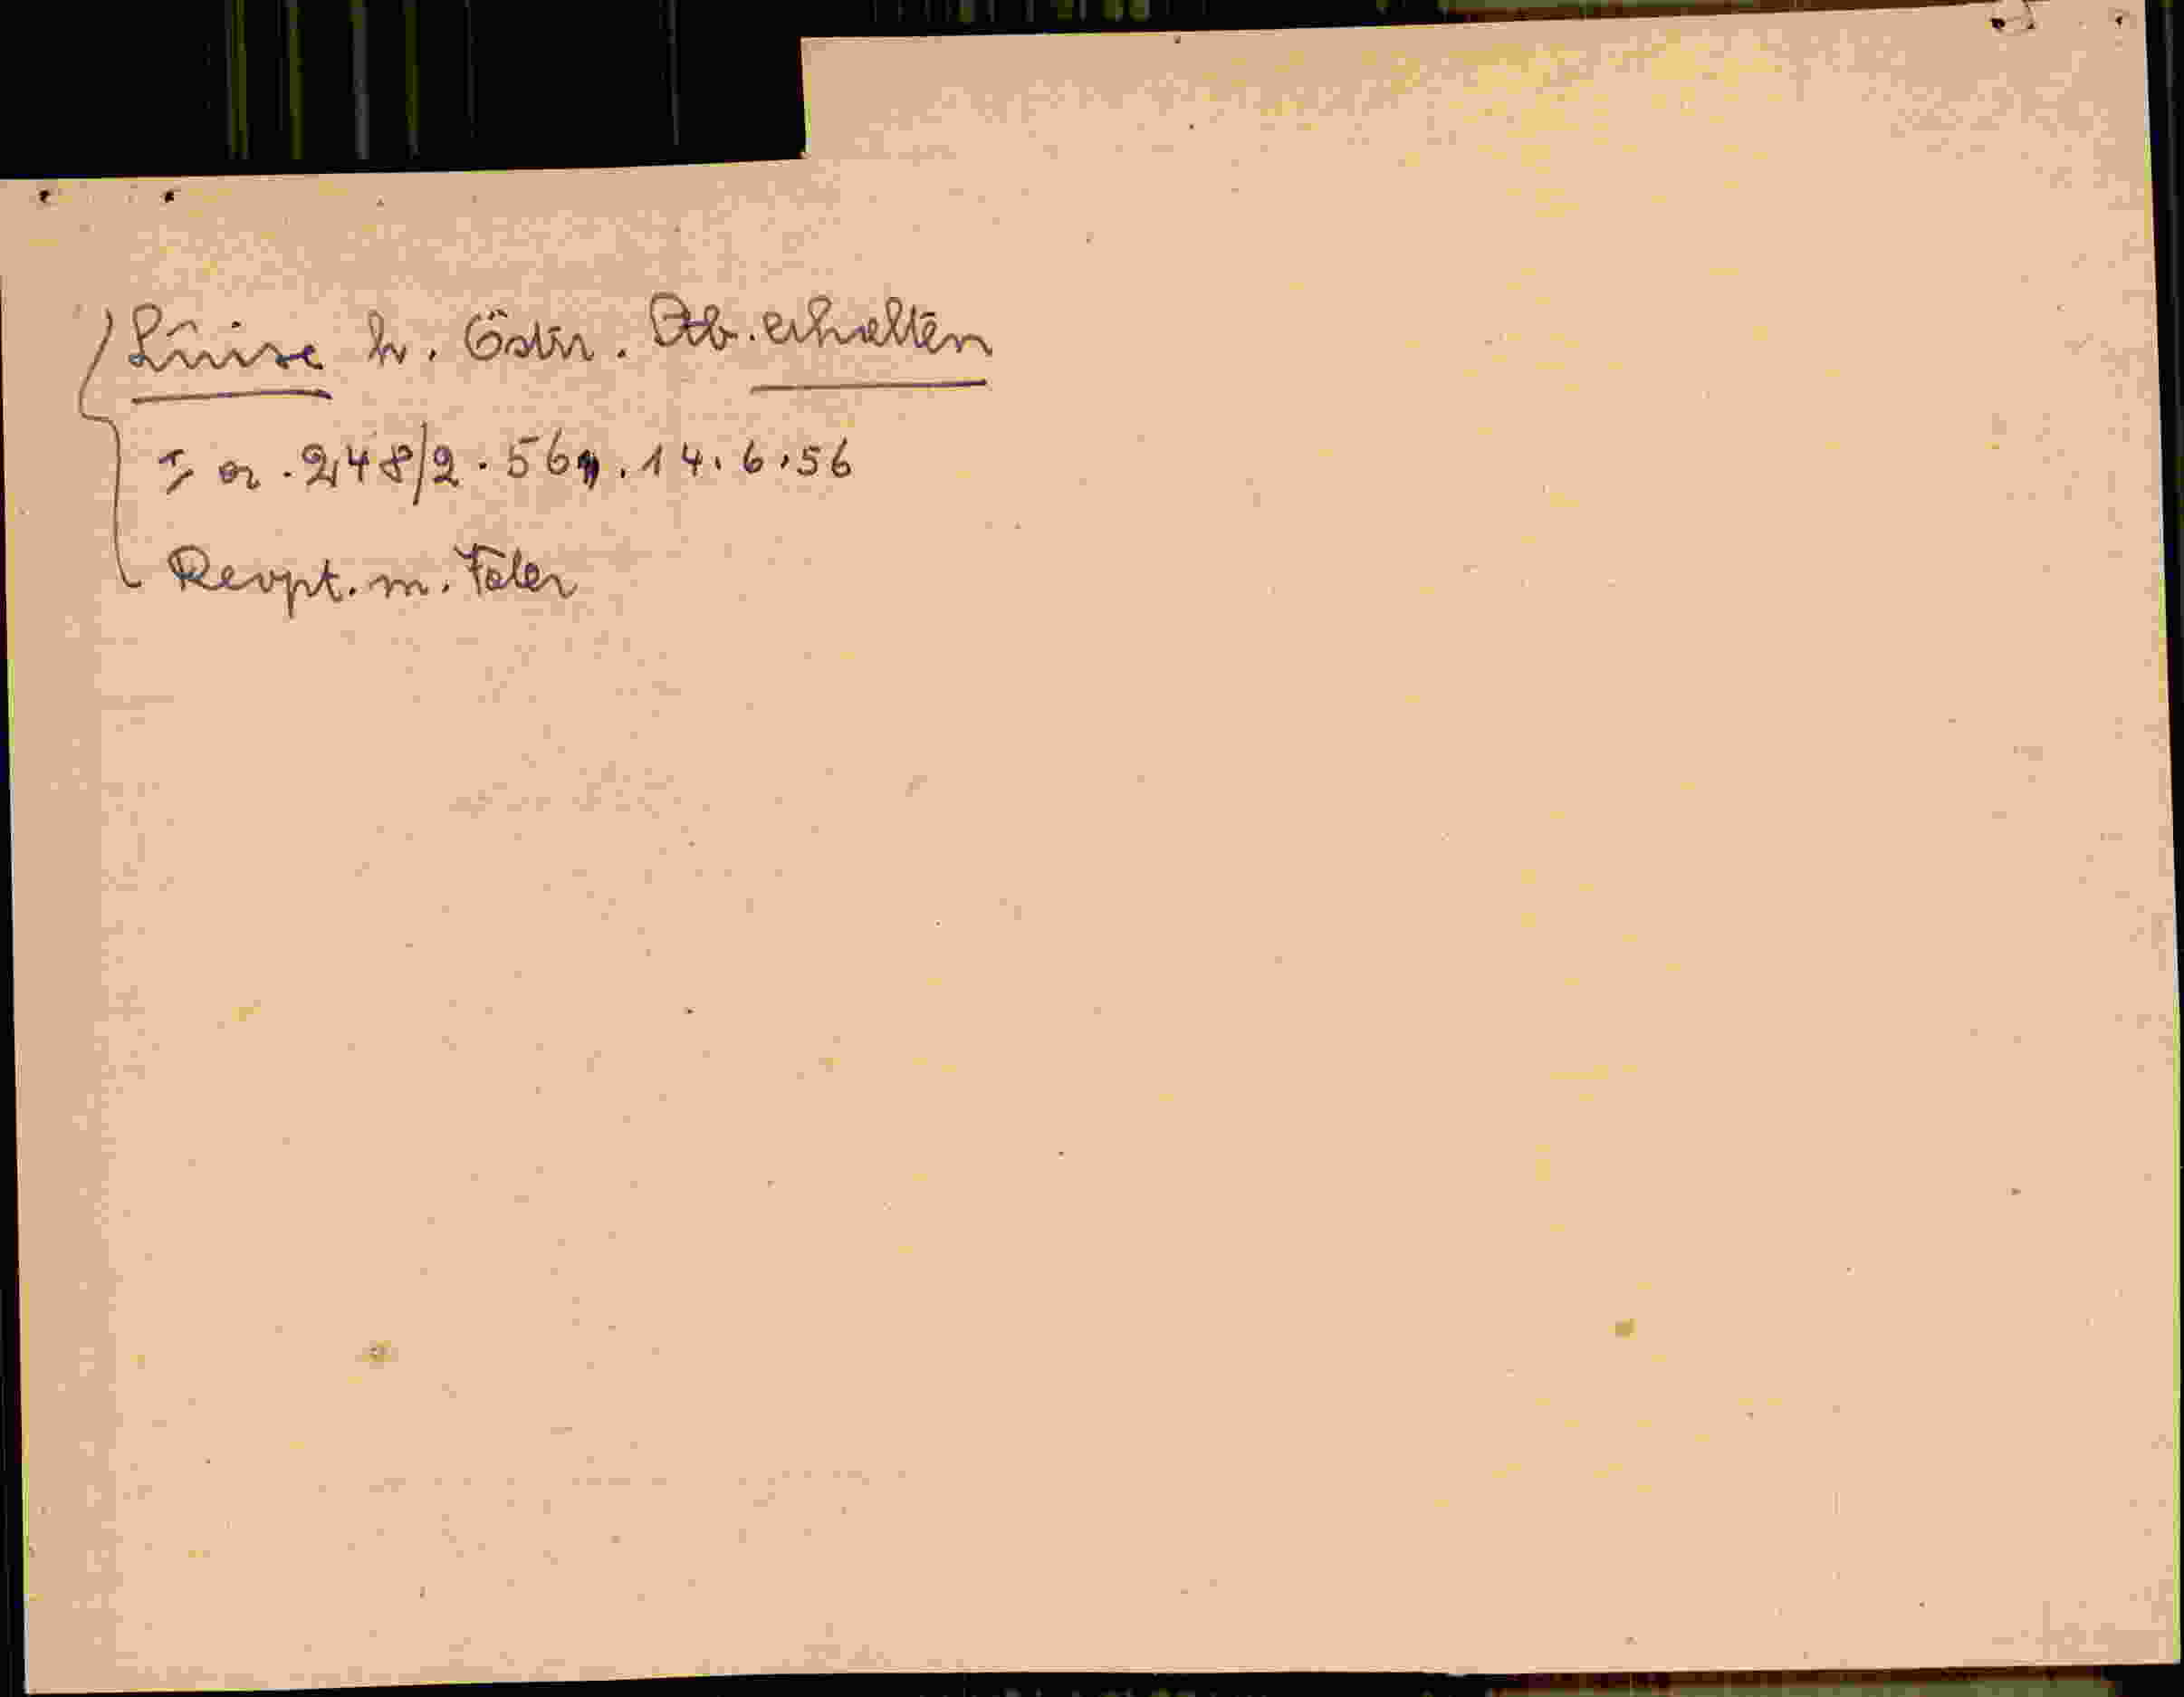 Luise h. Östr. Stb. erhalten
I or. 248/2. 56, . 14. 6. 56
Revpt. m. Feler